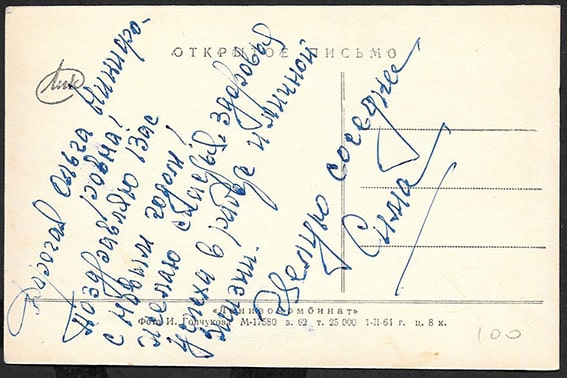 ОТКРЫТОЕ ПИСЬМО
Дорогая Ольга Никифо-
ровна!
Поздравляю Вас
с Новым годом!
Желаю счастья, здоровья
успеха в работе и личной
жизни.
Целую соседка
Сима
«Ленизокомбинат»
Фото И. Голчукова М-17580 з. 62 т. 25 000 1-II-61 г. ц. 8 к.
100